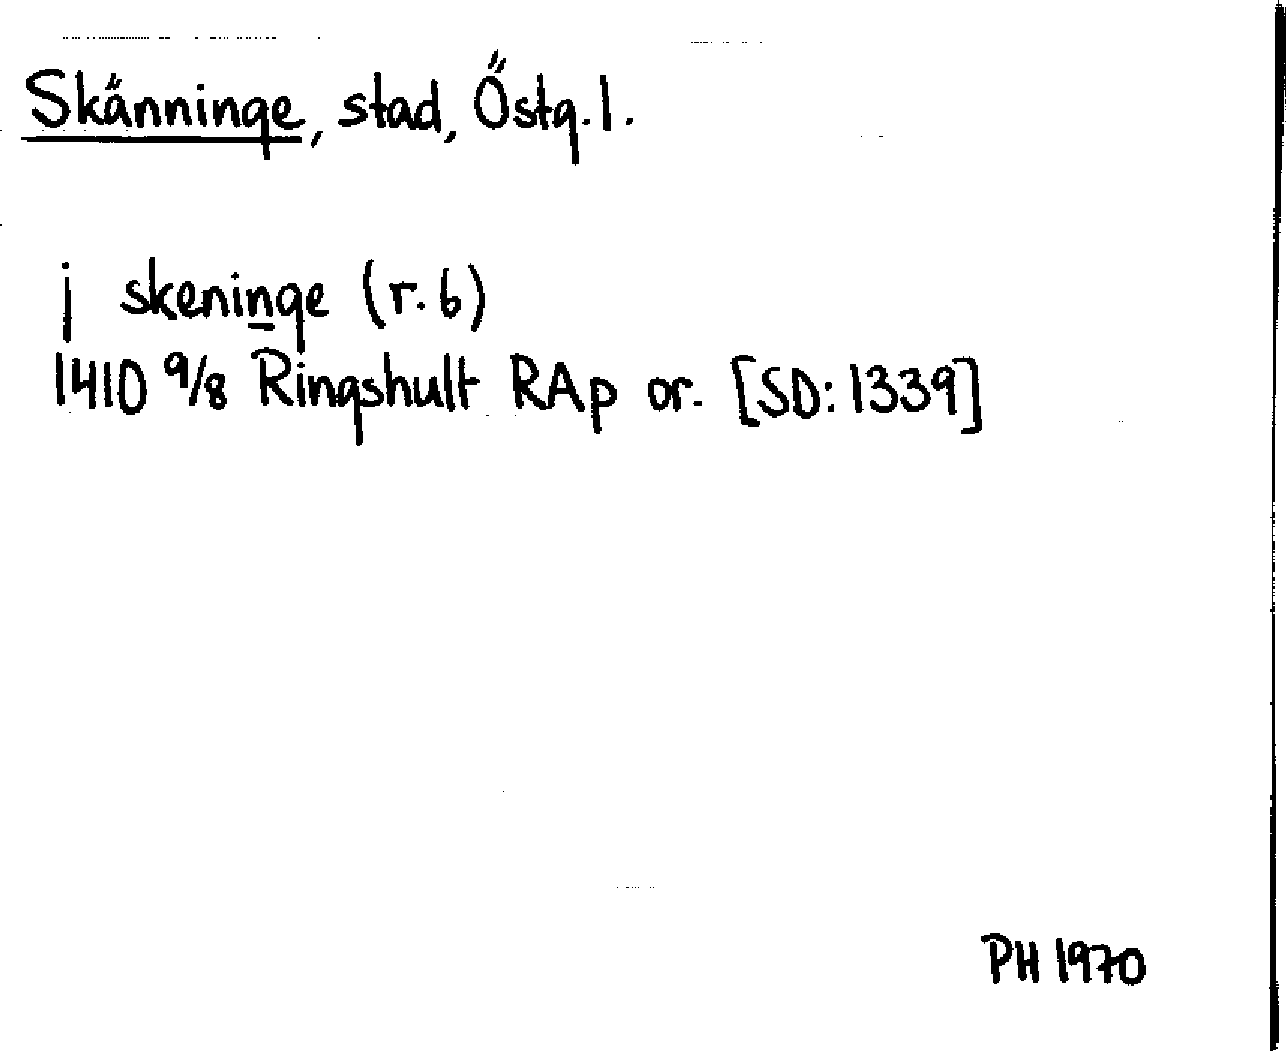 Skänninge, stad, Östg.l.
j skeninge (r.6)
1410 9/8 Ringshult RAp or. [SD: 1339]
PH 1970